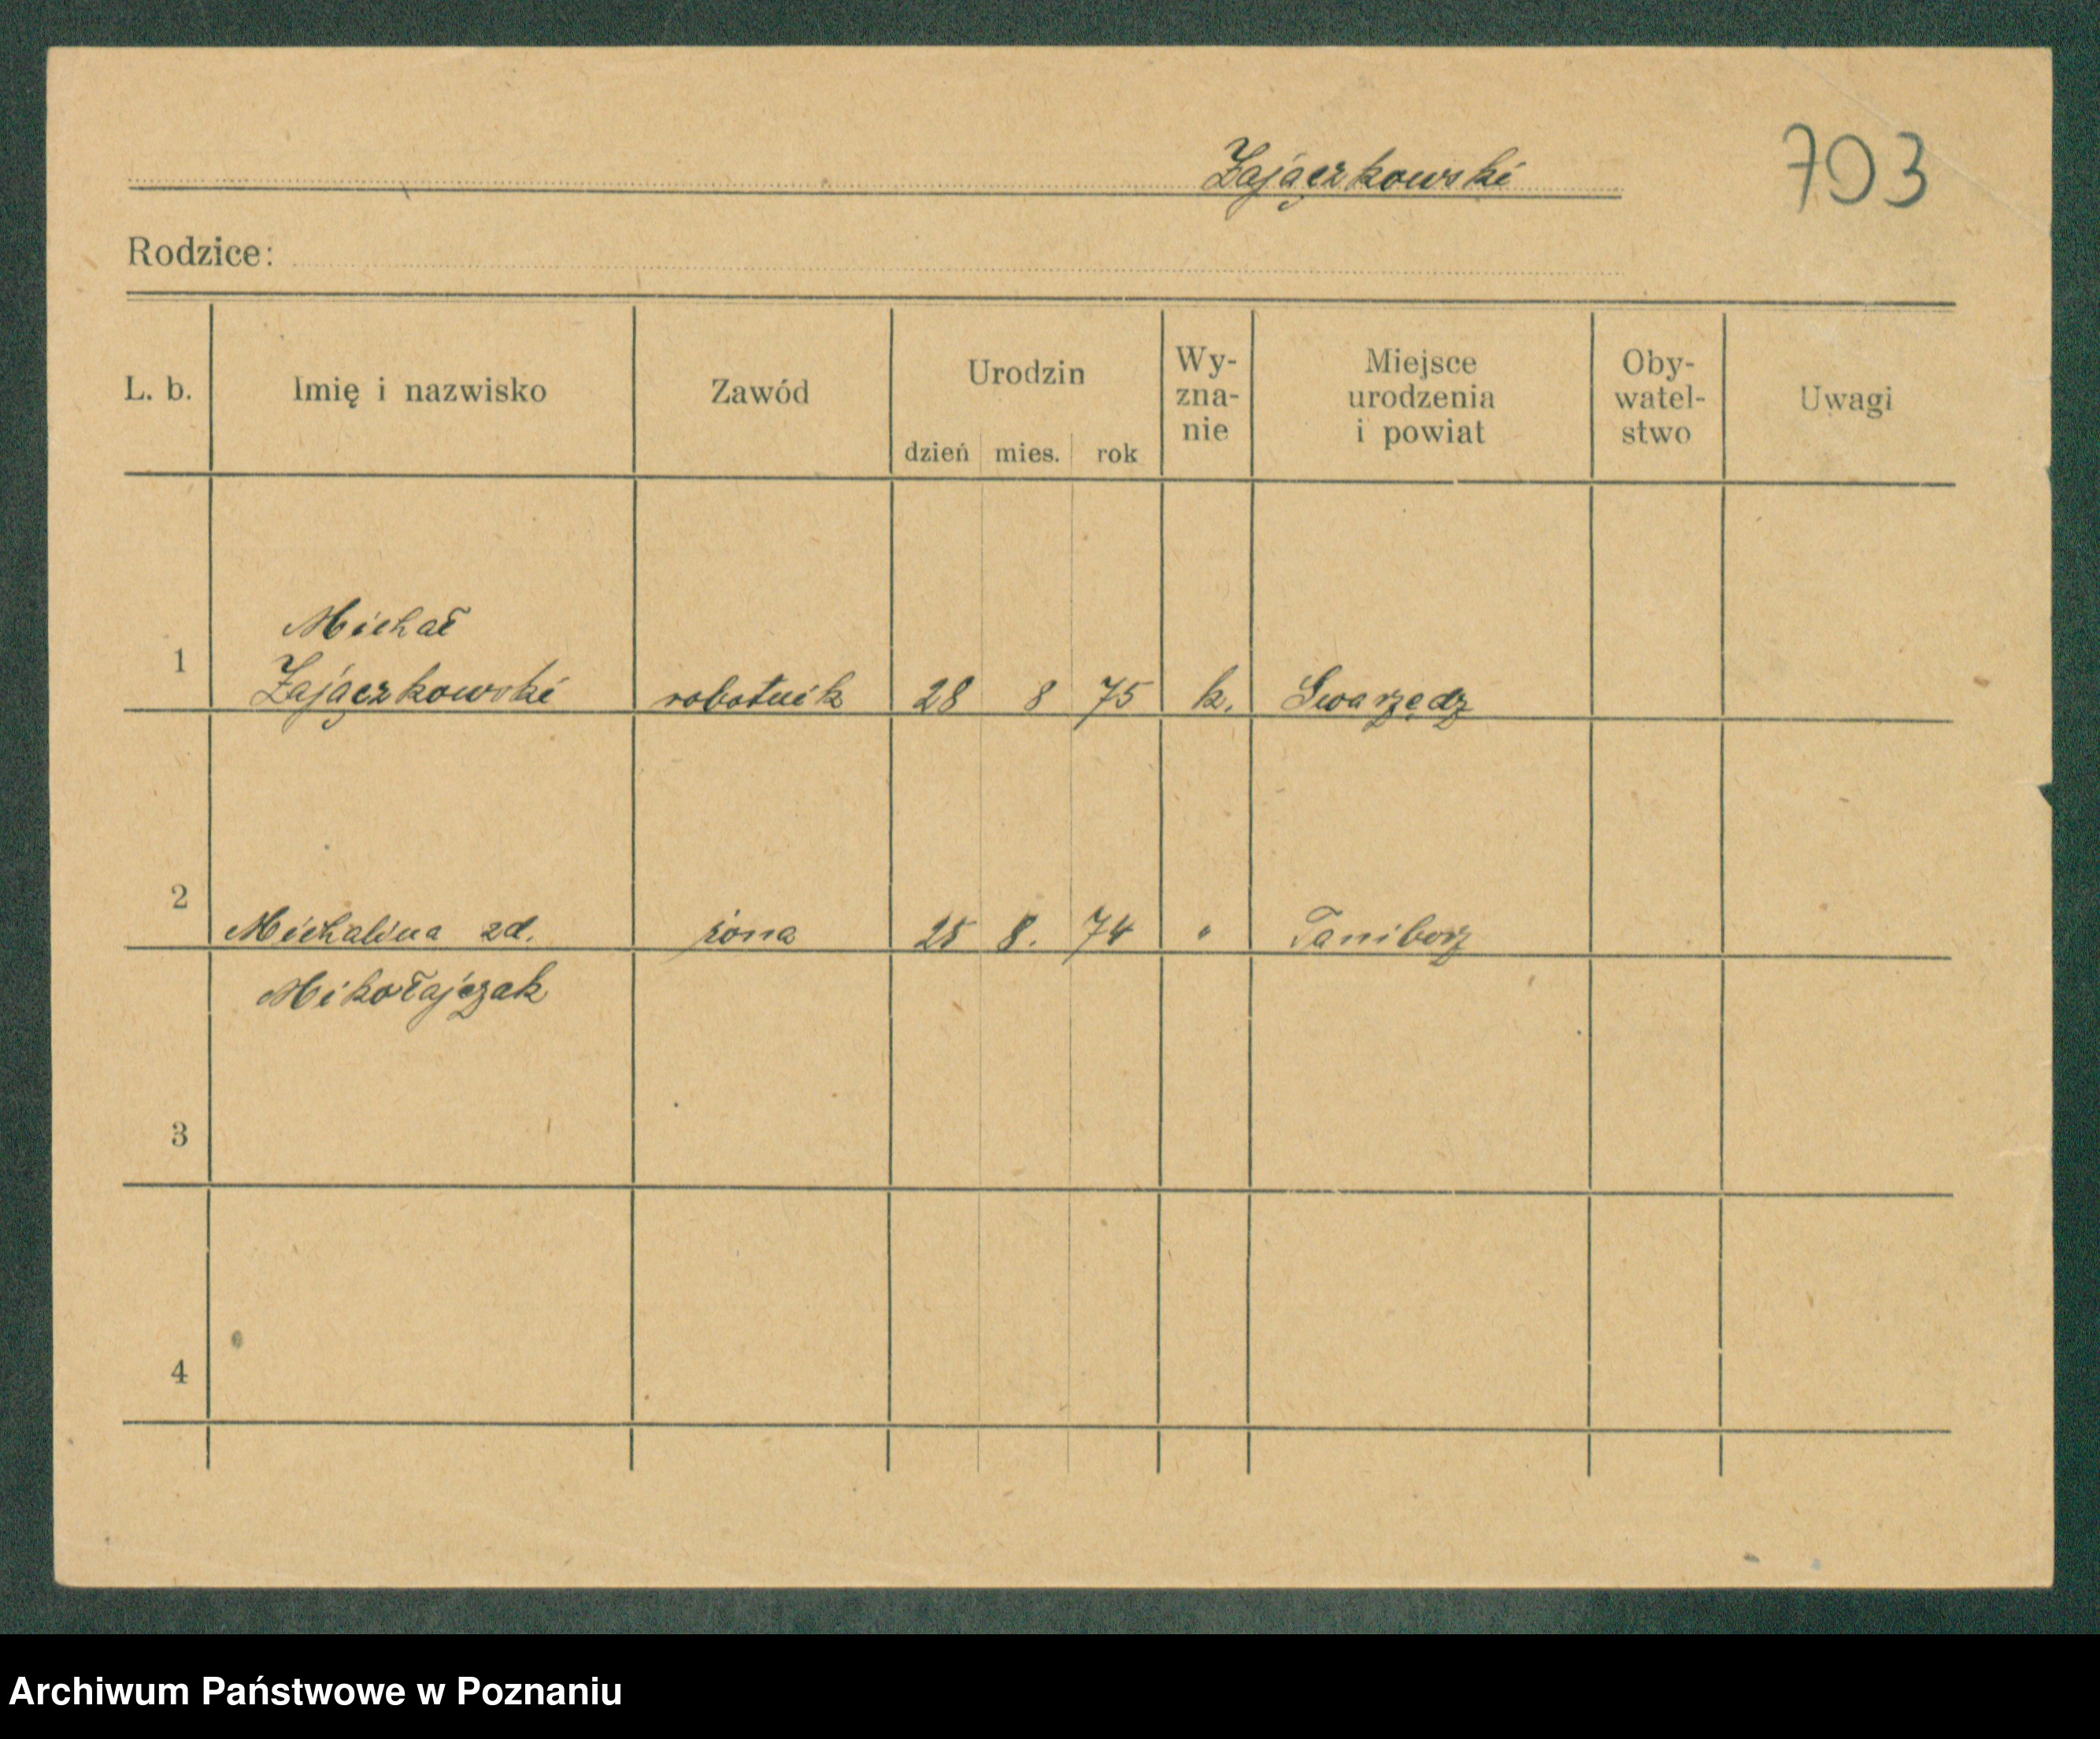 Zajączkowski
703
Rodzice:
L. b. Imię i nazwisko Zawód Urodzin dzień mies. rok Wy-zna-nie Miejsce urodzenia i powiat Oby-watel-stwo Uwagi
Michał
1 Zajączkowski robotnik 28 8 75 k. Swarzędz
2 Michalina zd. żona 25 8. 74 " Taniborz
Mikołajczak
3
4
Archiwum Państwowe w Poznaniu